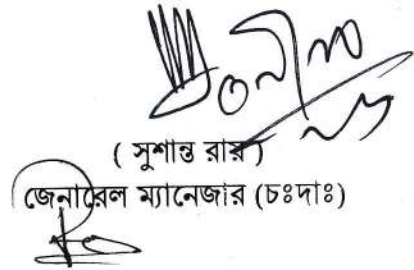 ( সুশান্ত রায় )
জেনারেল ম্যানেজার (চঃদাঃ)